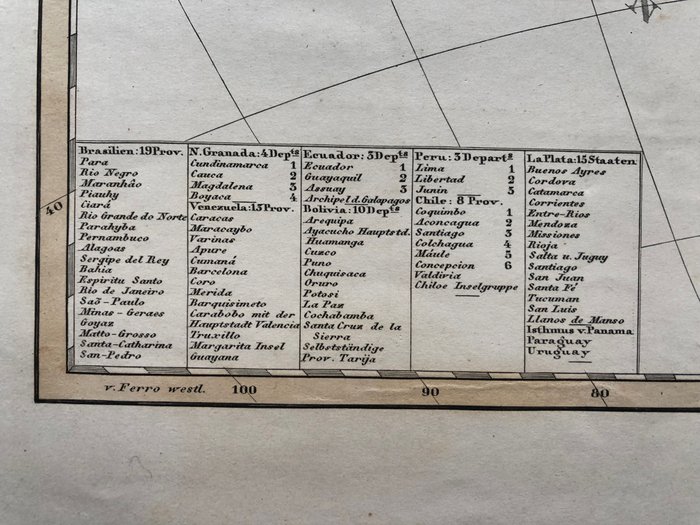 Brasilien: 19 Prov.
Para
Rio Negro
Maranhâo
Piauhy
Ciará
Rio Grande do Norte
Parahyba
Pernambuco
Alagoas
Sergipe del Rey
Bahia
Espiritu Santo
Rio de Janeiro
Saõ-Paulo
Minas-Geraes
Goyaz
Matto-Grosso
Santa-Catharina
San-Pedro
N. Granada: 4 Depts
Cundinamarca 1
Cauca 2
Magdalena 3
Boyaca 4
Venezuela: 15 Prov.
Caracas
Maracaybo
Varinas
Apure
Cumaná
Barcelona
Coro
Merida
Barquisimeto
Carabobo mit der
Hauptstadt Valencia
Truxillo
Margarita Insel
Guayana
Ecuador: 3 Depts
Ecuador 1
Guayaquil 2
Assuay 3
Archipel d. Galapagos
Bolivia: 10 Depts
Arequipa
Ayacucho Hauptstd.
Huamanga
Cuzco
Puno
Chuquisaca
Oruro
Potosi
La Paz
Cochabamba
Santa Cruz de la
Sierra
Selbstständige
Prov. Tarija
Peru: 3 Departs
Lima 1
Libertad 2
Junin 3
Chile: 8 Prov.
Coquimbo 1
Aconcagua 2
Santiago 3
Colchagua 4
Máule 5
Concepcion 6
Valdivia
Chiloe Inselgruppe
La Plata: 15 Staaten
Buenos Ayres
Cordova
Catamarca
Corrientes
Entre-Rios
Mendoza
Missiones
Rioja
Salta u. Juguy
Santiago
San Juan
Santa Fé
Tucuman
San Luis
Llanos de Manso
Isthmus v. Panama
Paraguay
Uruguay
40
v. Ferro westl. 100 90 80